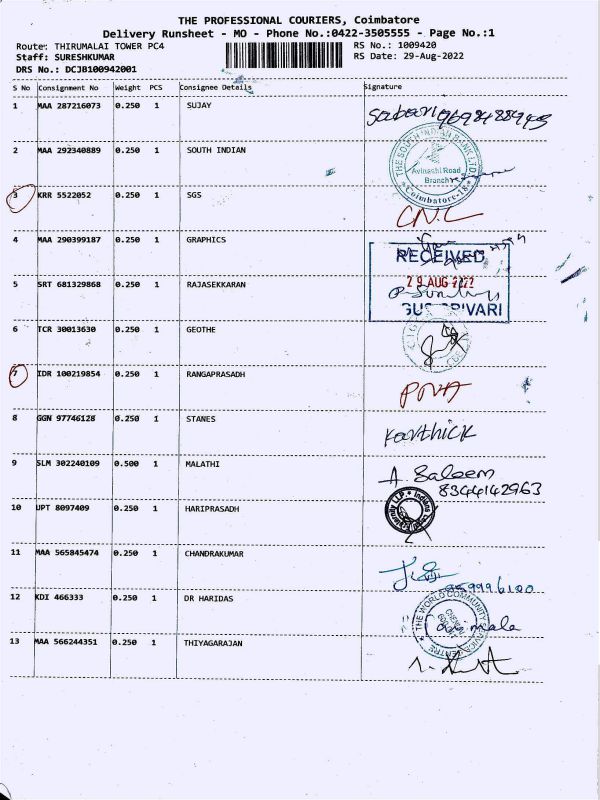 THE PROFESSIONAL COURIERS, Coimbatore
Delivery Runsheet - MO - Phone No.:0422-3505555 - Page No.:1
Route: THIRUMALAI TOWER PC4 RS No.: 1009420
Staff: SURESHKUMAR RS Date: 29-Aug-2022
DRS No.: DCJB100942001
S No Consignment No Weight PCS Consignee Details Signature
1 MAA 287216073 0.250 1 SUJAY
2 MAA 292340889 0.250 1 SOUTH INDIAN
THE SOUTH INDIAN BANK LTD.
Avinashi Road
Branch
Coimbatore-18
3 KRR 5522052 0.250 1 SGS CNL
4 MAA 290399187 0.250 1 GRAPHICS
RECEIVED
5 SRT 681329868 0.250 1 RAJASEKKARAN 29 AUG 2022
6 TCR 30013630 0.250 1 GEOTHE
7 IDR 100219854 0.250 1 RANGAPRASADH PNA
8 GGN 97746128 0.250 1 STANES Karthick
9 SLM 302240109 0.500 1 MALATHI A. Saleem
8344142963
10 UPT 8097409 0.250 1 HARIPRASADH
11 MAA 565845474 0.250 1 CHANDRAKUMAR
12 KDI 466333 0.250 1 DR HARIDAS
THE WORLD COMMUNITY SERVICE CENTRE
13 MAA 566244351 0.250 1 THIYAGARAJAN